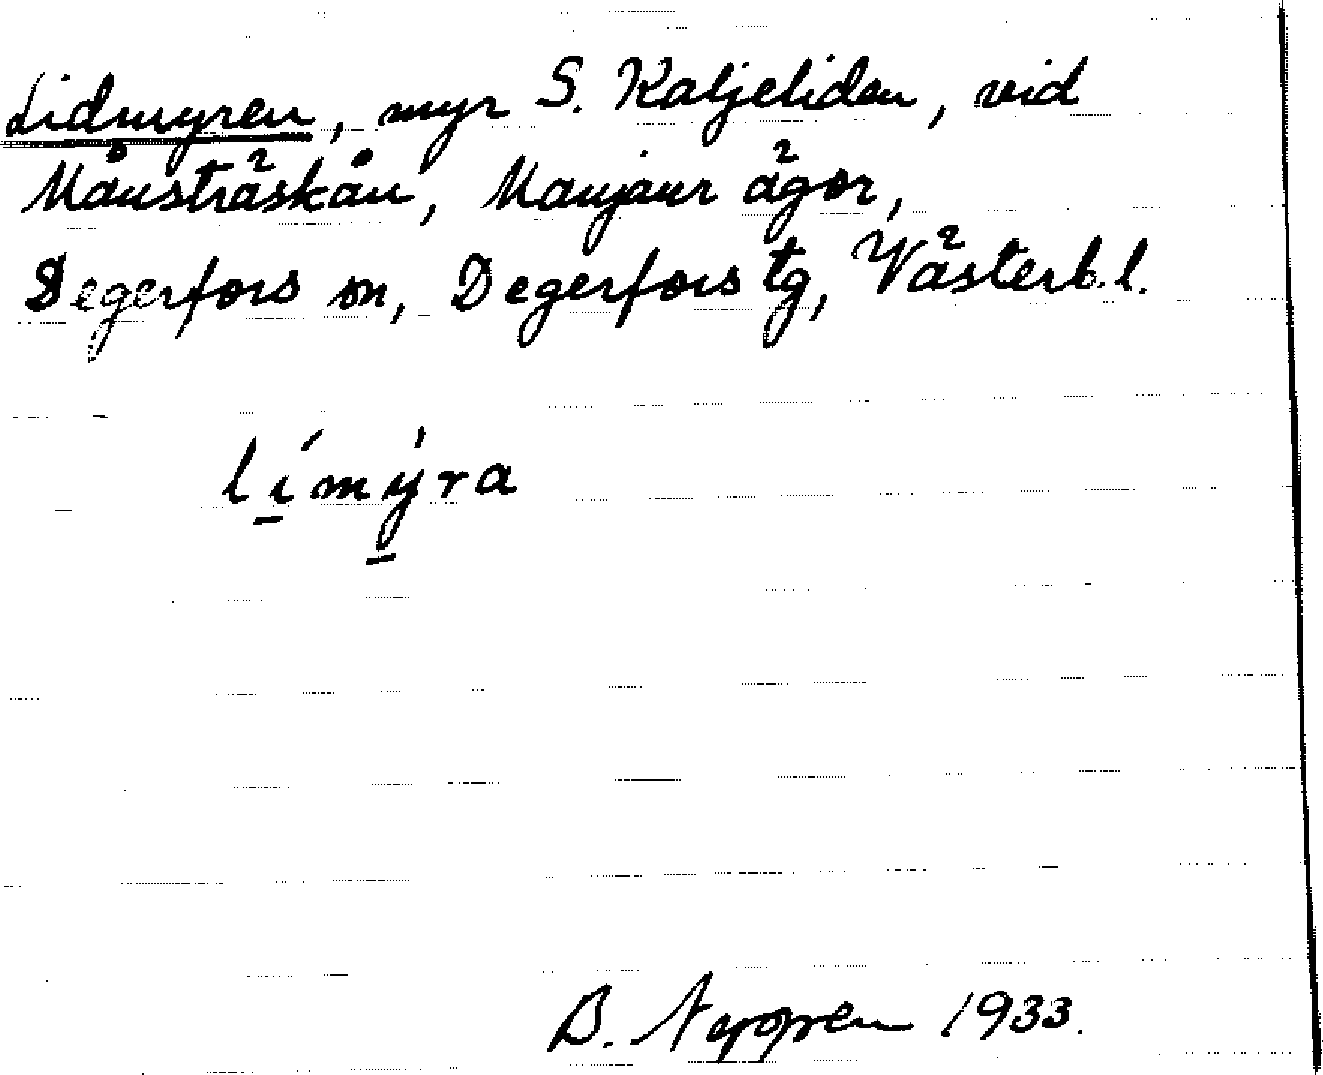 Lidmyren, myr S. Kaljeliden, vid
Månsträskån, Manjaur ägor,
Degerfors sn, Degerfors tg, Västerb.l.
límýra
B. Nygren 1933.